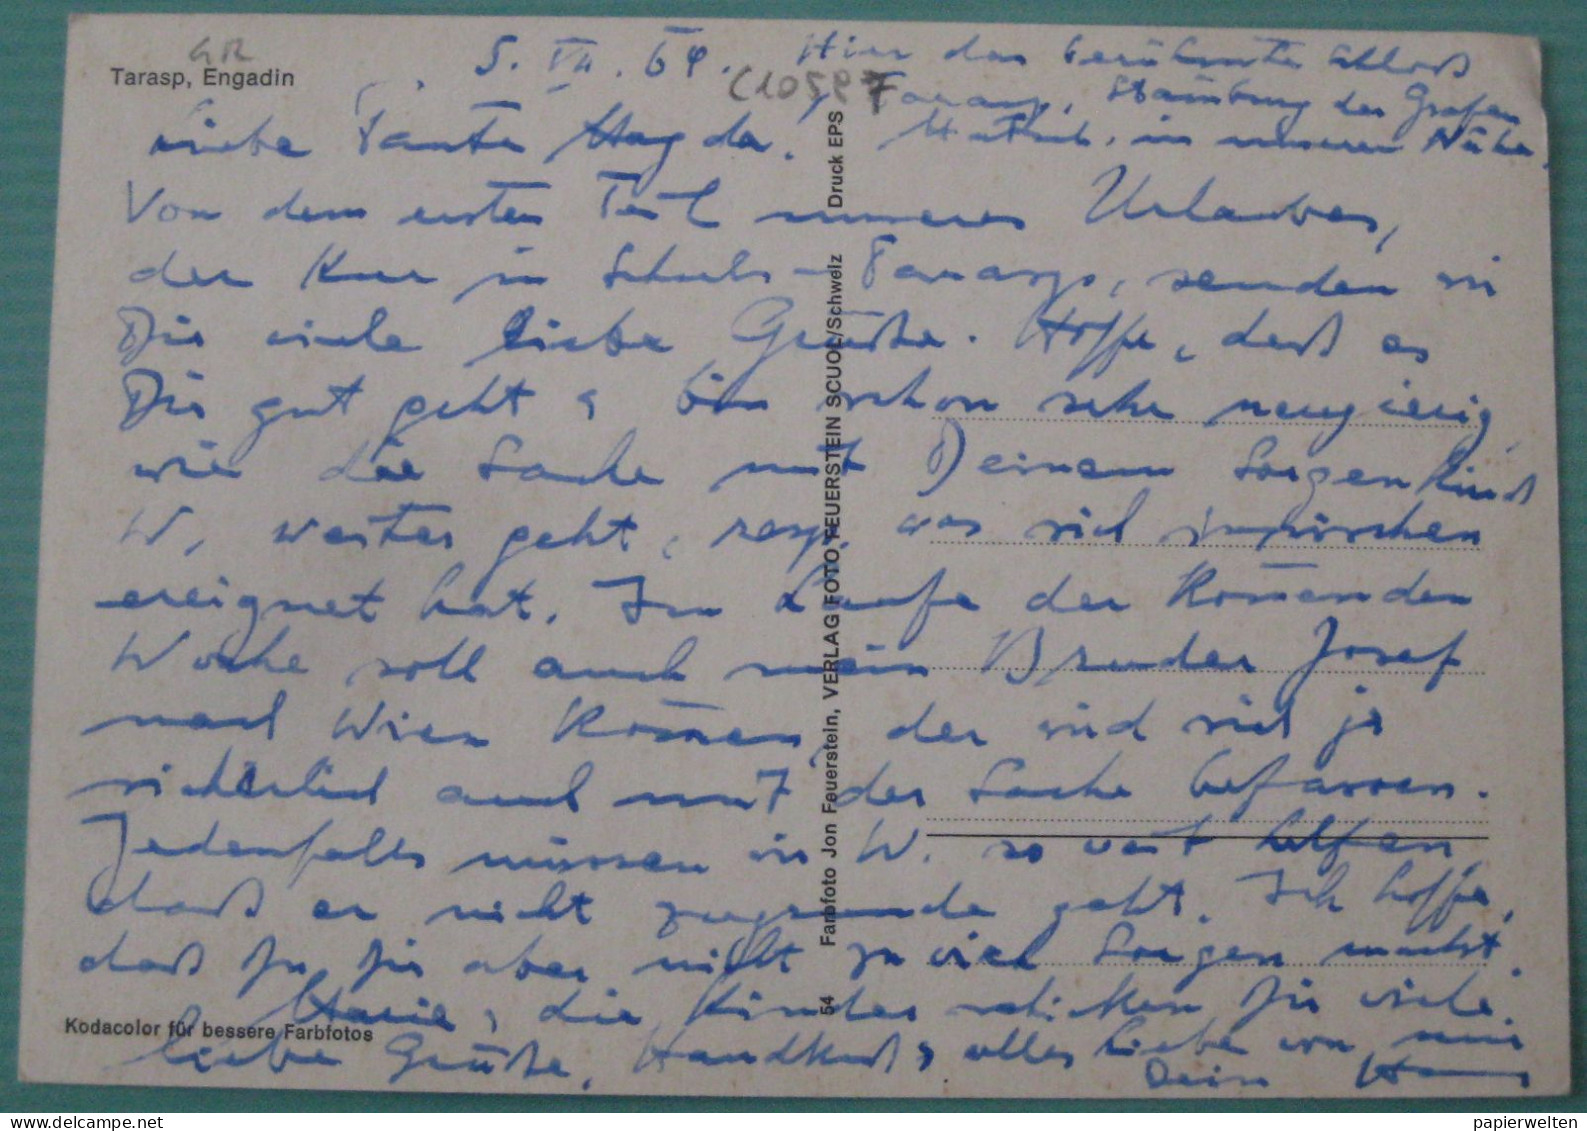 GR
Tarasp, Engadin
5. VII. 64.
Hier das berühmte Schloß
Tarasp, Stammburg der Grafen
in unserer Nähe.
C10587
Liebe Tante Magda!
Von dem ersten Teil unseres Urlaubes,
der Kur in Schuls-Tarasp, senden wir
Dir viele liebe Grüße. Hoffe, daß es
Dir gut geht & bin schon sehr neugierig,
wie die Sache mit Deinem Sorgenkind
W. weiter geht, resp. was sich inzwischen
ereignet hat. Im Laufe der kom̄enden
Woche soll auch mein Bruder Josef
nach Wien kom̄en, der wird sich ja
sicherlich auch mit der Sache befassen.
Jedenfalls müssen wir W. so weit helfen,
daß er nicht zugrunde geht. Ich hoffe,
daß Du Dir aber nicht zu viel Sorgen machst.
Marie & die Kinder schicken Dir viele
liebe Grüße, Handkuß & alles Liebe von mir
Dein Hans
Kodacolor für bessere Farbfotos
54 Farbfoto Jon Feuerstein, VERLAG FOTO FEUERSTEIN SCUOL/Schweiz Druck EPS
papierwelten